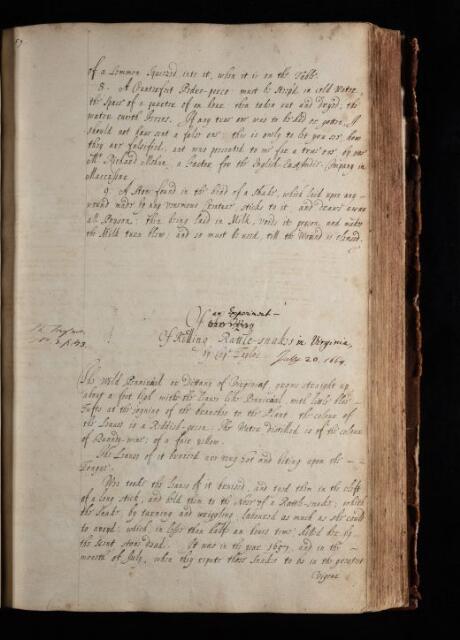 of a Lemmon squeezed into it, when it is on the Table.
8. A Counterfeit Pedro-porco must be steep'd in cold Water,
the space of a quarter of an hour then taken out and dryed, the
water
should not fear sent a false one; this is onely to let you see, how
they are falsifyed, and was presented to me for a true one, by one
Mr. Richard a Factor for the English East-India-Company in
Maccassar.
9. A Stone found in the head of a Snake, which laid upon any
wound made by any venemous Creature sticks to it, and draws away
all Poyson: then being laid in Milk, voids its poyson, and makes
the Milk turn blew; and so must be used, till the Wound is cleansed.
an Experiment
Of
Of Killing Rattle-snakes in Virginia,
by Capt. Taylor. July 20. 1664.
The Wild Penniroial or Dittany of Virginia, grows straight up
about a foot high, with the leaves like Penniroial, with little blew
Tufts at the joyning of the branches to the Plant, the colour of
the Leaves is a Reddish-green. The Water distilled is of the colour
of Brandy-wine, of a fair yellow.
The Leaves of it bruised are very hot and biting upon the
Tongue.
We tooke the leaves of it bruised, and tyed them in the cleft
of a long stick, and held them to the Nose of a Rattle-snake, which
the Snake, by turning and wriggling laboured as much as she could
to avoyd: which, in less than half an hours time, killed her by
the scent thereof. It was in the year 1657, and in the
month of July, when they repute those Snakes to be in the greatest
Vigour